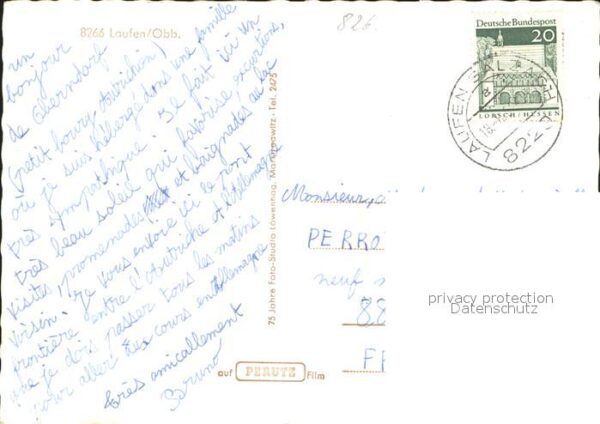 8266 Laufen/Obb.
826
un
bonjour
de Oberndorf
(petit bourg autrichien)
où je suis hébergé dans une famille
très sympathique. Il fait ici un
très beau soleil qui favorise excursions,
visites, promenades et baignades au lac
voisin. Je vous envoie ici le pont
frontière entre l'Autriche et l'Allemagne
que je dois passer tous les matins
pour aller des cours en Allemagne
très amicalement
Bruno
75 Jahre Foto-Studio Löwenhag, Tel. 2475
auf PERUTZ Film
Deutsche Bundespost
20
LORSCH/HESSEN
LAUFEN
8229
Monsieur
PERRO
neuf
88
F
privacy protection
Datenschutz